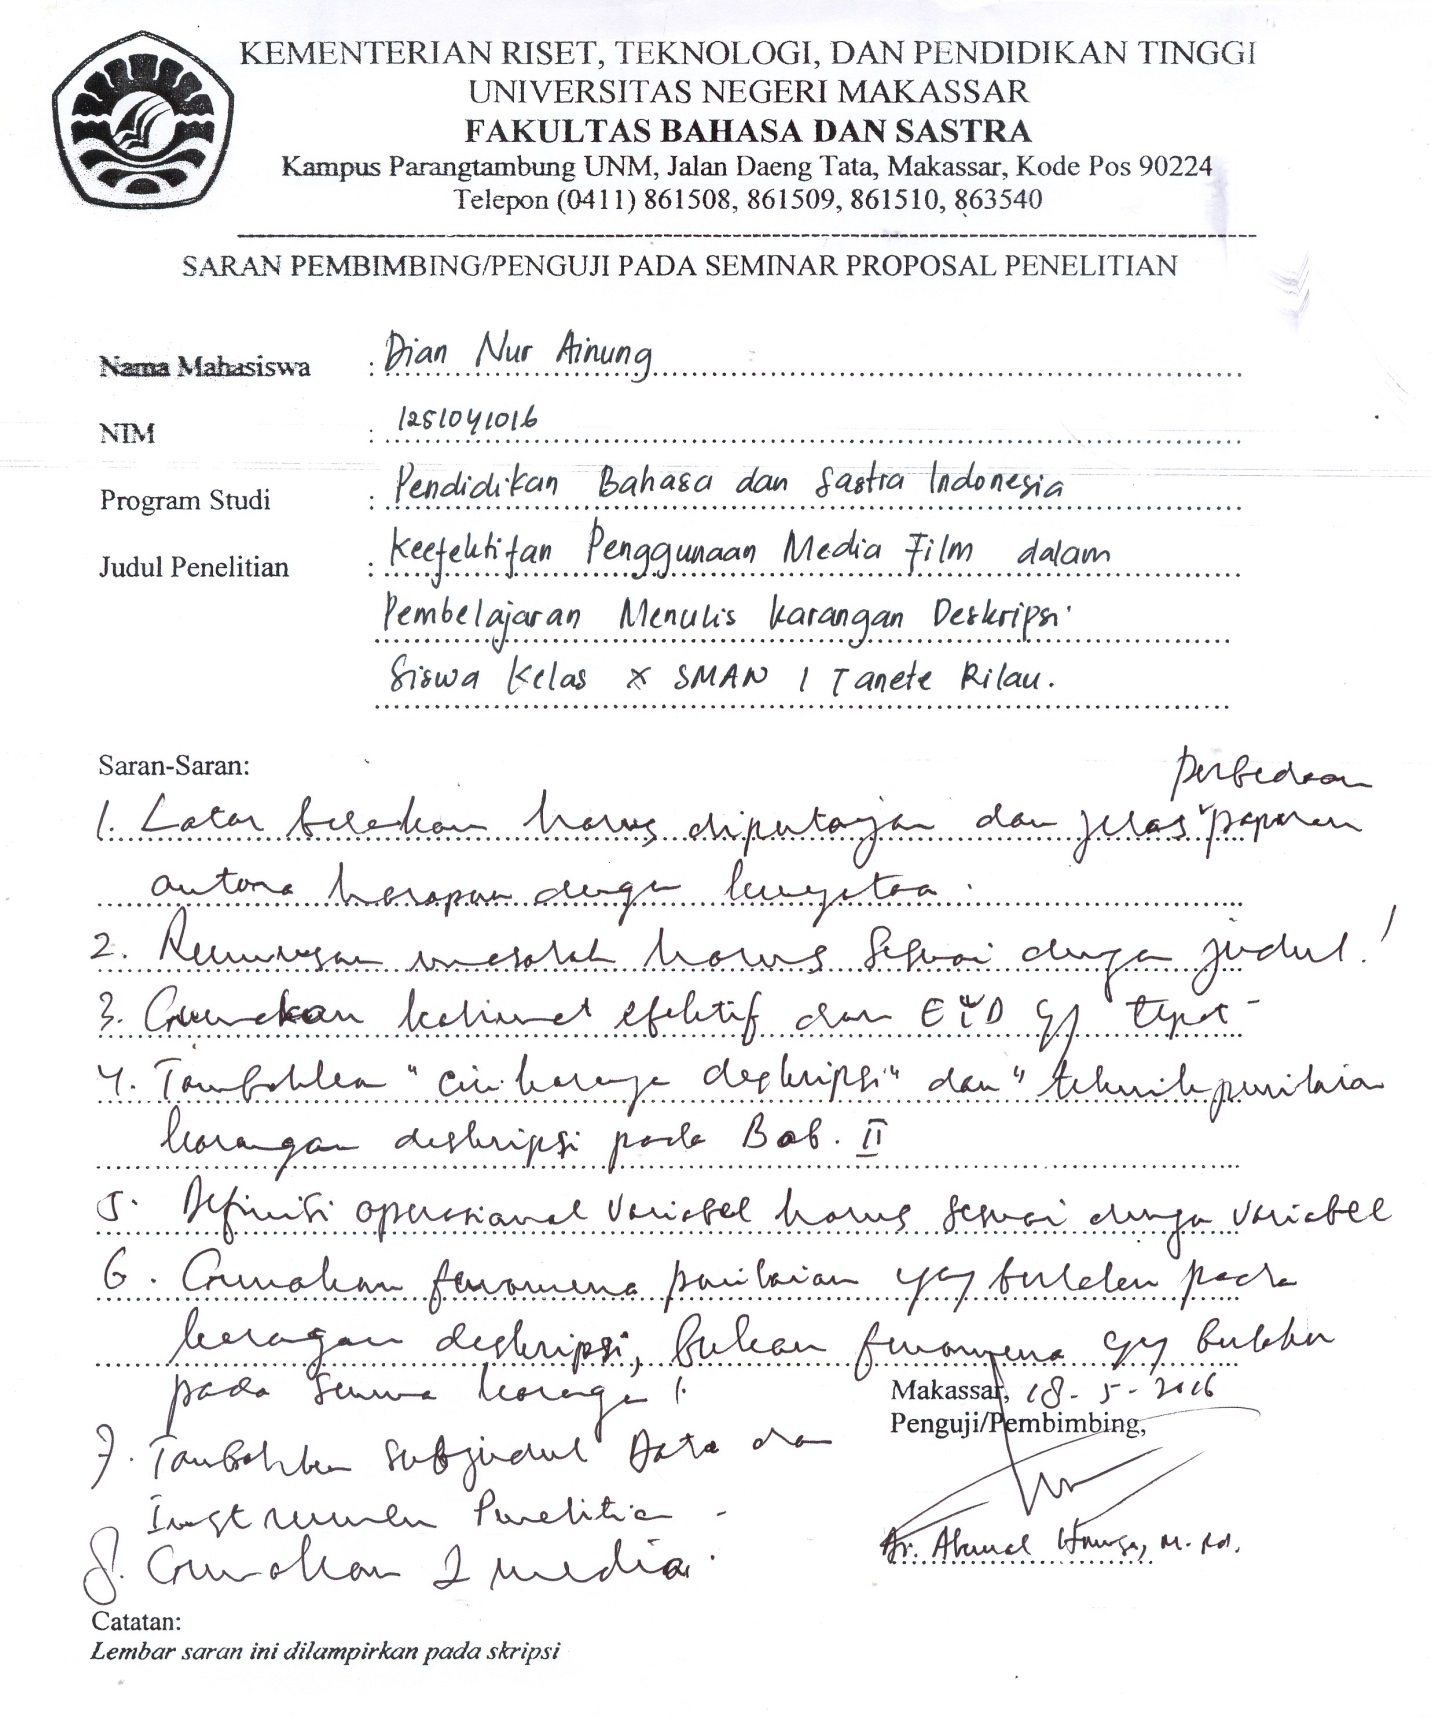 KEMENTERIAN RISET, TEKNOLOGI, DAN PENDIDIKAN TINGGI
UNIVERSITAS NEGERI MAKASSAR
FAKULTAS BAHASA DAN SASTRA
Kampus Parangtambung UNM, Jalan Daeng Tata, Makassar, Kode Pos 90224
Telepon (0411) 861508, 861509, 861510, 863540
SARAN PEMBIMBING/PENGUJI PADA SEMINAR PROPOSAL PENELITIAN
Nama Mahasiswa : Dian Nur Ainung
NIM : 1251041016
Program Studi : Pendidikan Bahasa dan Sastra Indonesia
Judul Penelitian : Keefektifan Penggunaan Media Film dalam
Pembelajaran Menulis Karangan Deskripsi
Siswa Kelas X SMAN 1 Tanete Rilau.
Saran-Saran:
perbedaan
1. Latar belakang harus dipertajam dan jelas paparan
antara harapan dengan kenyataan.
2. Rumusan masalah harus sesuai dengan judul!
3. Gunakan kalimat efektif dan EYD yg tepat
4. Tambahkan "ciri karangan deskripsi" dan "teknik penilaian
karangan deskripsi pada Bab. II
5. Definisi operasional variabel harus sesuai dengan variabel
6. Gunakan fenomena penilaian yg berlaku pada
karangan deskripsi, bukan fenomena yg berlaku
pada semua karangan!
7. Tambahkan subjudul Data dan
Instrumen Penelitian -
8. Gunakan 2 media.
Makassar, 18-5-2016
Penguji/Pembimbing,
Dr. M.Pd.
Catatan:
Lembar saran ini dilampirkan pada skripsi